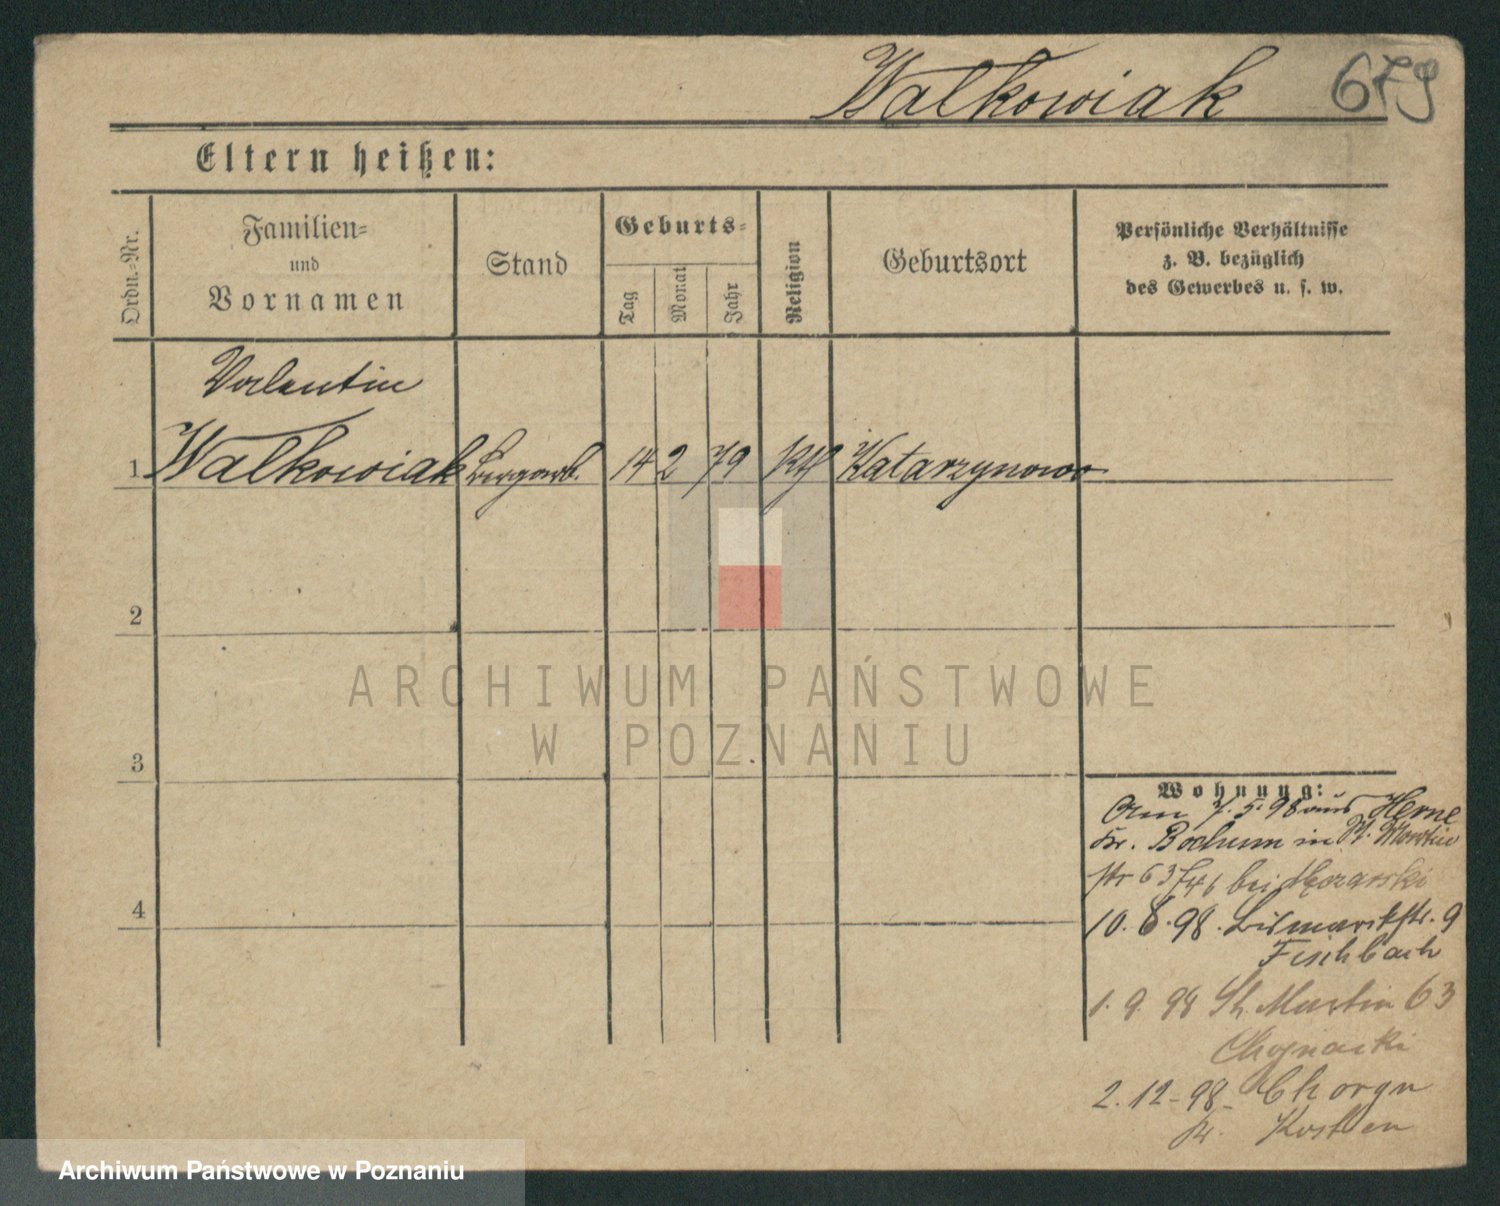 Walkowiak 679
Eltern heißen:
Ordn.-Nr.
Familien-
und
Vornamen
Stand
Geburts-
Tag
Monat
Jahr
Religion
Geburtsort
Persönliche Verhältnisse
z. B. bezüglich
des Gewerbes u. s. w.
Valentin
1 Walkowiak Bergarb. 14 2 79 Kth Katarzynowo
2
3
4
Wohnung:
Am 7. 5. 98 aus Herne
Kr. Bochum in St. Martin
str 63 bei
10. 6. 98. Bismarckstr. 9
Fischbach
1. 9. 98 St. Martin 63
Chojnacki
2. 12 - 98 - Choryn
Kr. Kosten
ARCHIWUM PAŃSTWOWE
W POZNANIU
Archiwum Państwowe w Poznaniu